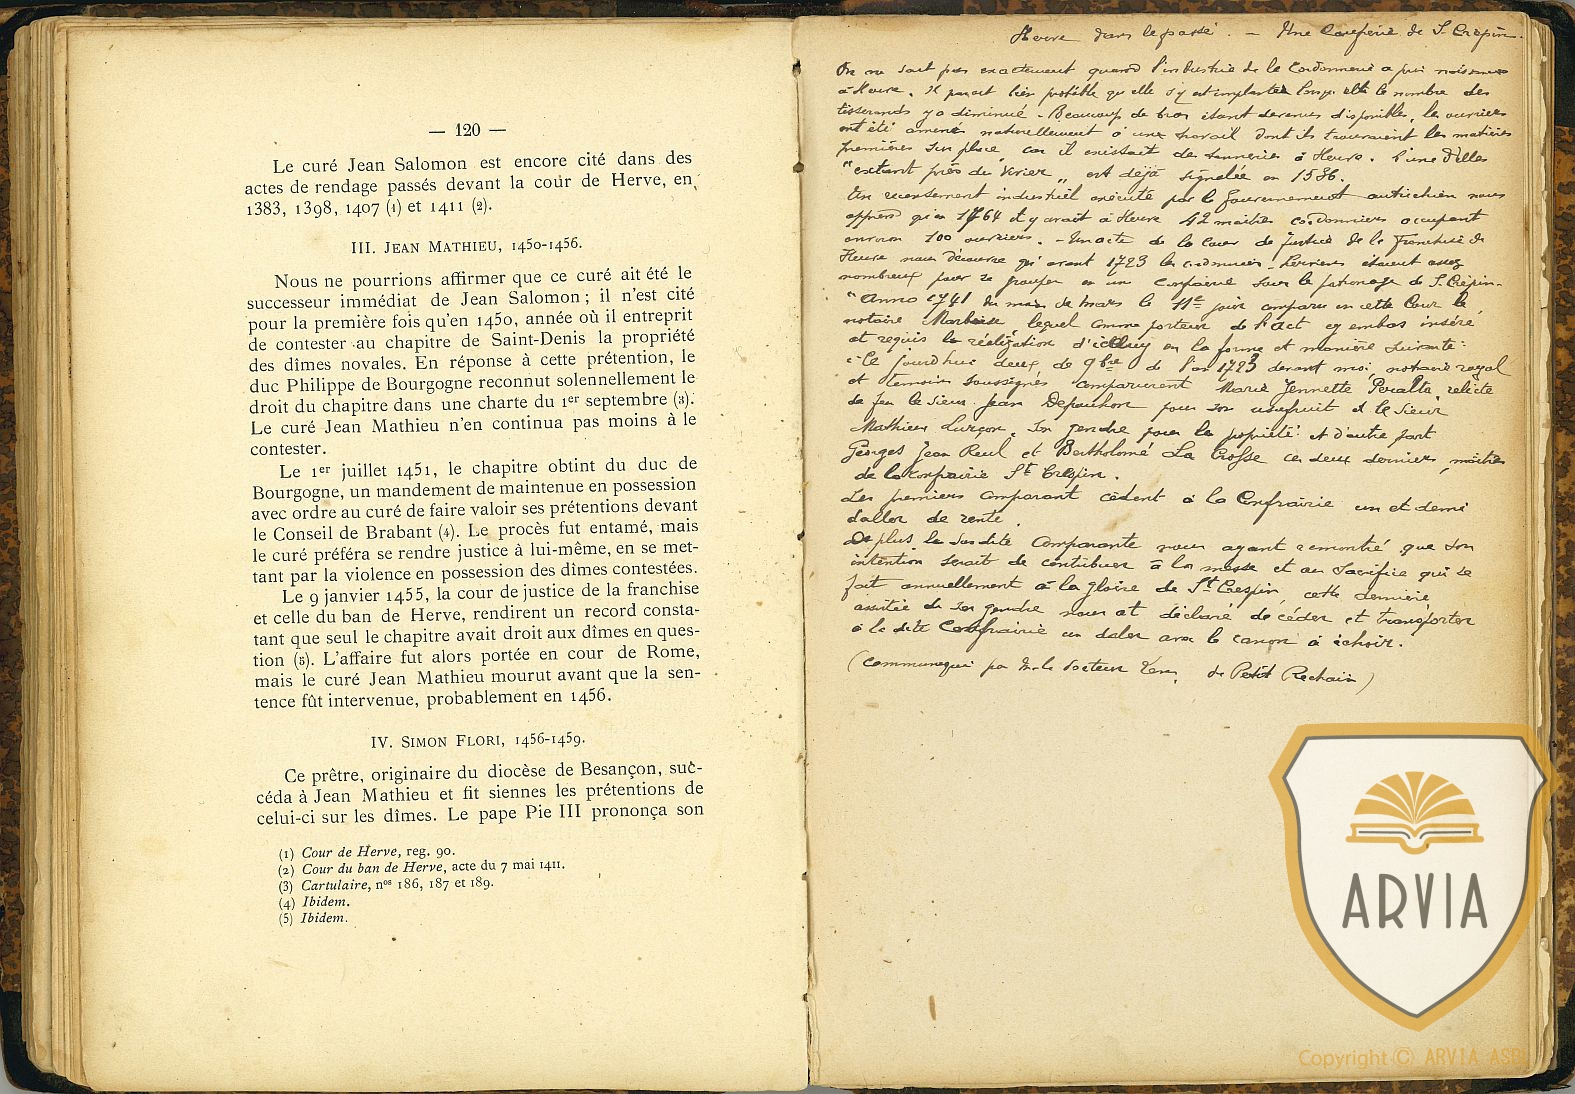 — 120 —
Le curé Jean Salomon est encore cité dans des
actes de rendage passés devant la cour de Herve, en
1383, 1398, 1407 (1) et 1411 (2).
III. Jean Mathieu, 1450-1456.
Nous ne pourrions affirmer que ce curé ait été le
successeur immédiat de Jean Salomon ; il n'est cité
pour la première fois qu'en 1450, année où il entreprit
de contester au chapitre de Saint-Denis la propriété
des dîmes novales. En réponse à cette prétention, le
duc Philippe de Bourgogne reconnut solennellement le
droit du chapitre dans une charte du 1er septembre (3).
Le curé Jean Mathieu n'en continua pas moins à le
contester.
Le 1er juillet 1451, le chapitre obtint du duc de
Bourgogne, un mandement de maintenue en possession
avec ordre au curé de faire valoir ses prétentions devant
le Conseil de Brabant (4). Le procès fut entamé, mais
le curé préféra se rendre justice à lui-même, en se met-
tant par la violence en possession des dîmes contestées.
Le 9 janvier 1455, la cour de justice de la franchise
et celle du ban de Herve, rendirent un record consta-
tant que seul le chapitre avait droit aux dîmes en ques-
tion (5). L'affaire fut alors portée en cour de Rome,
mais le curé Jean Mathieu mourut avant que la sen-
tence fût intervenue, probablement en 1456.
IV. Simon Flori, 1456-1459.
Ce prêtre, originaire du diocèse de Besançon, suc-
céda à Jean Mathieu et fit siennes les prétentions de
celui-ci sur les dîmes. Le pape Pie III prononça son
(1) Cour de Herve, reg. 90.
(2) Cour du ban de Herve, acte du 7 mai 1411.
(3) Cartulaire, nos 186, 187 et 189.
(4) Ibidem.
(5) Ibidem.
Herve dans le passé. — Une Confrérie de S. Crépin.
On ne sait pas exactement quand l'industrie de la Cordonnerie a pris naissance
à Herve. Il parait bien probable qu'elle s'y est implantée lorsque le nombre des
tisserands y a diminué - Beaucoup de bras étant devenus disponibles, les ouvriers
ont été amenés naturellement à un travail dont ils trouvaient les matières
premières sur place car il existait des tanneries à Herve. L'une d'elles
"extant près du Vivier" est déjà signalée en 1536.
Un recensement industriel exécuté par le gouvernement autrichien nous
apprend qu'en 1764 il y avait à Herve 42 maitres cordonniers occupant
environ 100 ouvriers. - Un acte de la Cour de justice de la Franchise de
Herve nous découvre qu'avant 1723 les cordonniers étaient assez
nombreux pour se grouper en un confrairie sous le patronage de S. Crépin.
"Anno 1741 du mois de mars le 11e jour comparu en cette Cour le
notaire lequel comme porteur de l'act cy embas inséré
at requis la réalisation d'icelluy en la forme et manière suivante :
Ce jourd'hui deux de 9bre de l'an 1723 devant moi, notaire royal
et temoins soussignés comparurent Marie Jennette Peralta, relicte
de feu le sieur Jean Depouhon pour son usufruit et le sieur
Mathieu Lurçon, son gendre pour la propriété et d'autre part
Georges Jean Reul et Bertholomé La Crosse ces deux derniers, maitres
de la confrairie St Crépin.
Les premiers comparant cèdent à la Confrairie un et demi
daller de rente.
De plus la susdite Comparante nous ayant remontré que son
intention serait de contribuer à la messe et au sacrifice qui se
fait annuellement à la gloire de St Crespin, cette dernière,
assistée de son gendre nous at déclaré de céder et transporter
à la dite Confrairie un daler avec le canon à échoir.
(Communiqué par Mr le docteur de Petit Rechain)
ARVIA
Copyright © ARVIA ASB